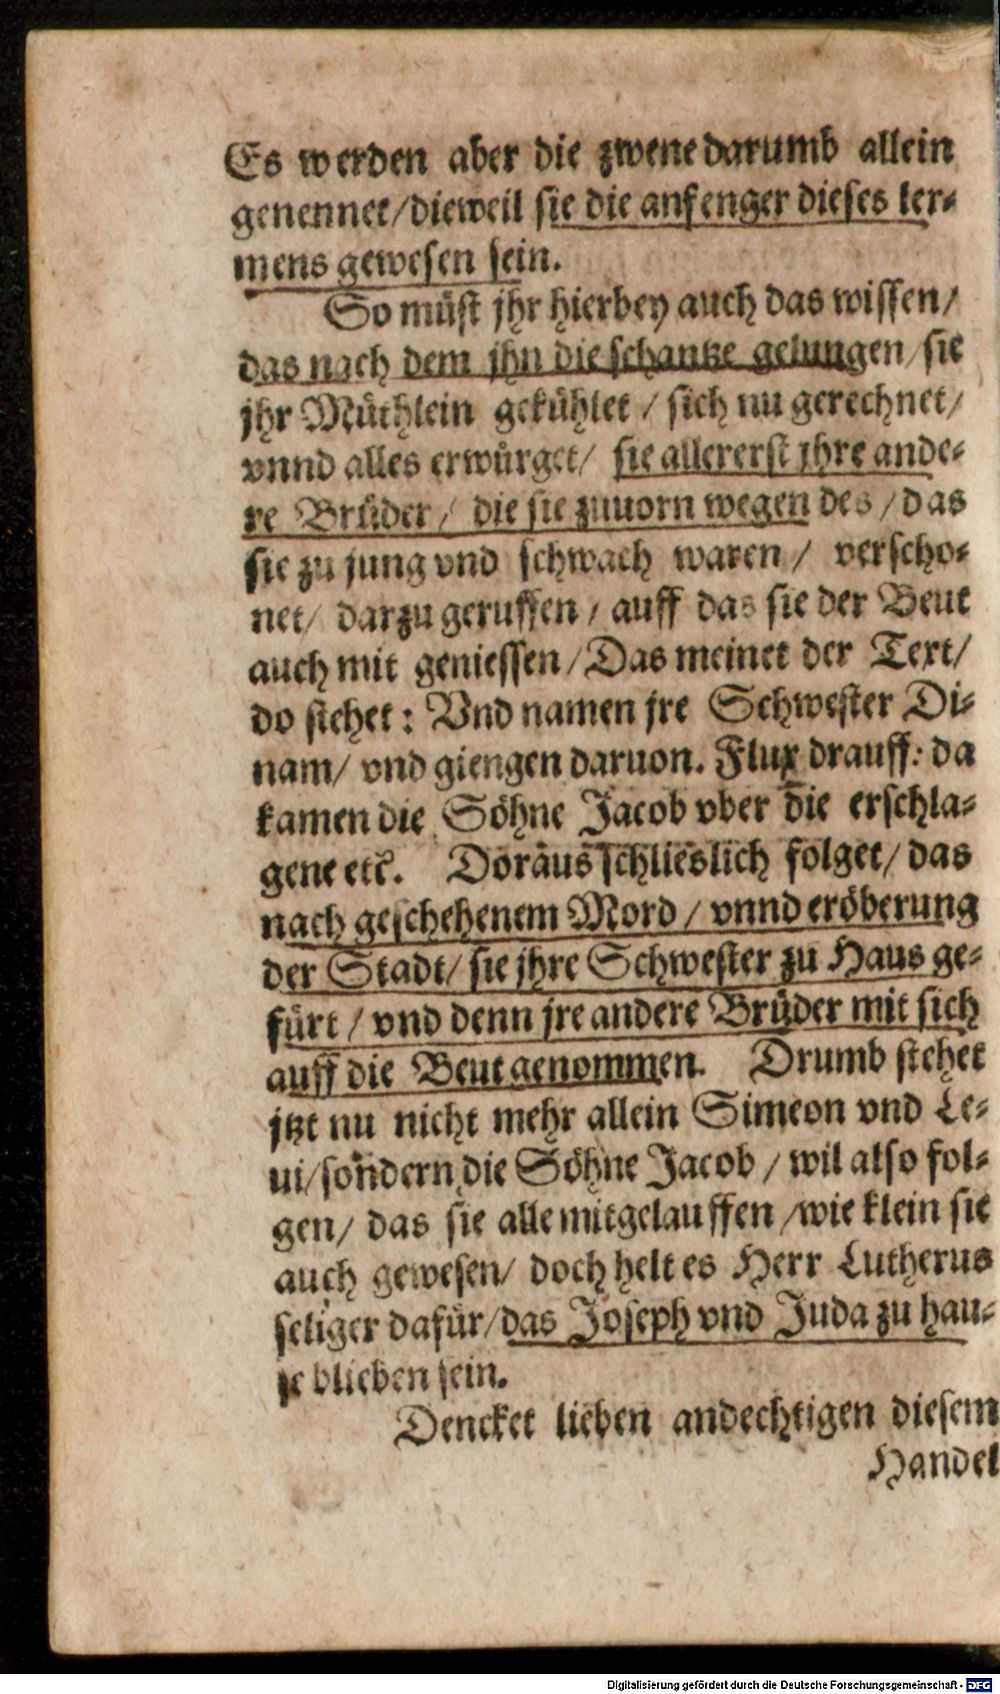 Es werden aber die zwene darumb allein
genennet/dieweil sie die anfenger dieses ler⸗
mens gewesen sein.
So müst jhr hierbey auch das wissen/
das nach dem jhn die schantze gelungen/sie
jhr Müthlein gekühlet / sich nu gerechnet/
vnnd alles erwürget/ sie allererst jhre ande⸗
re Brüder/ die sie zuuorn wegen des / das
sie zu jung vnd schwach waren / verscho⸗
net/ darzu geruffen / auff das sie der Beut
auch mit geniessen /Das meinet der Text/
do stehet: Vnd namen jre Schwester Di⸗
nam/ vnd giengen daruon. Flux drauff: da
kamen die Söhne Jacob vber die erschla⸗
gene etc. Doraus schlieslich folget/ das
nach geschehenem Mord / vnnd eröberung
der Stadt/ sie jhre Schwester zu Haus ge⸗
fürt / vnd denn jre andere Brüder mit sich
auff die Beut genommen. Drumb stehet
jtzt nu nicht mehr allein Simeon vnd Le⸗
ui/sondern die Söhne Jacob / wil also fol⸗
gen/ das sie alle mitgelauffen /wie klein sie
auch gewesen/ doch helt es Herr Lutherus
seliger dafür/das Joseph vnd Juda zu hau⸗
se blieben sein.
Dencket lieben andechtigen diesem
Handel
Digitalisierung gefördert durch die Deutsche Forschungsgemeinschaft - DFG